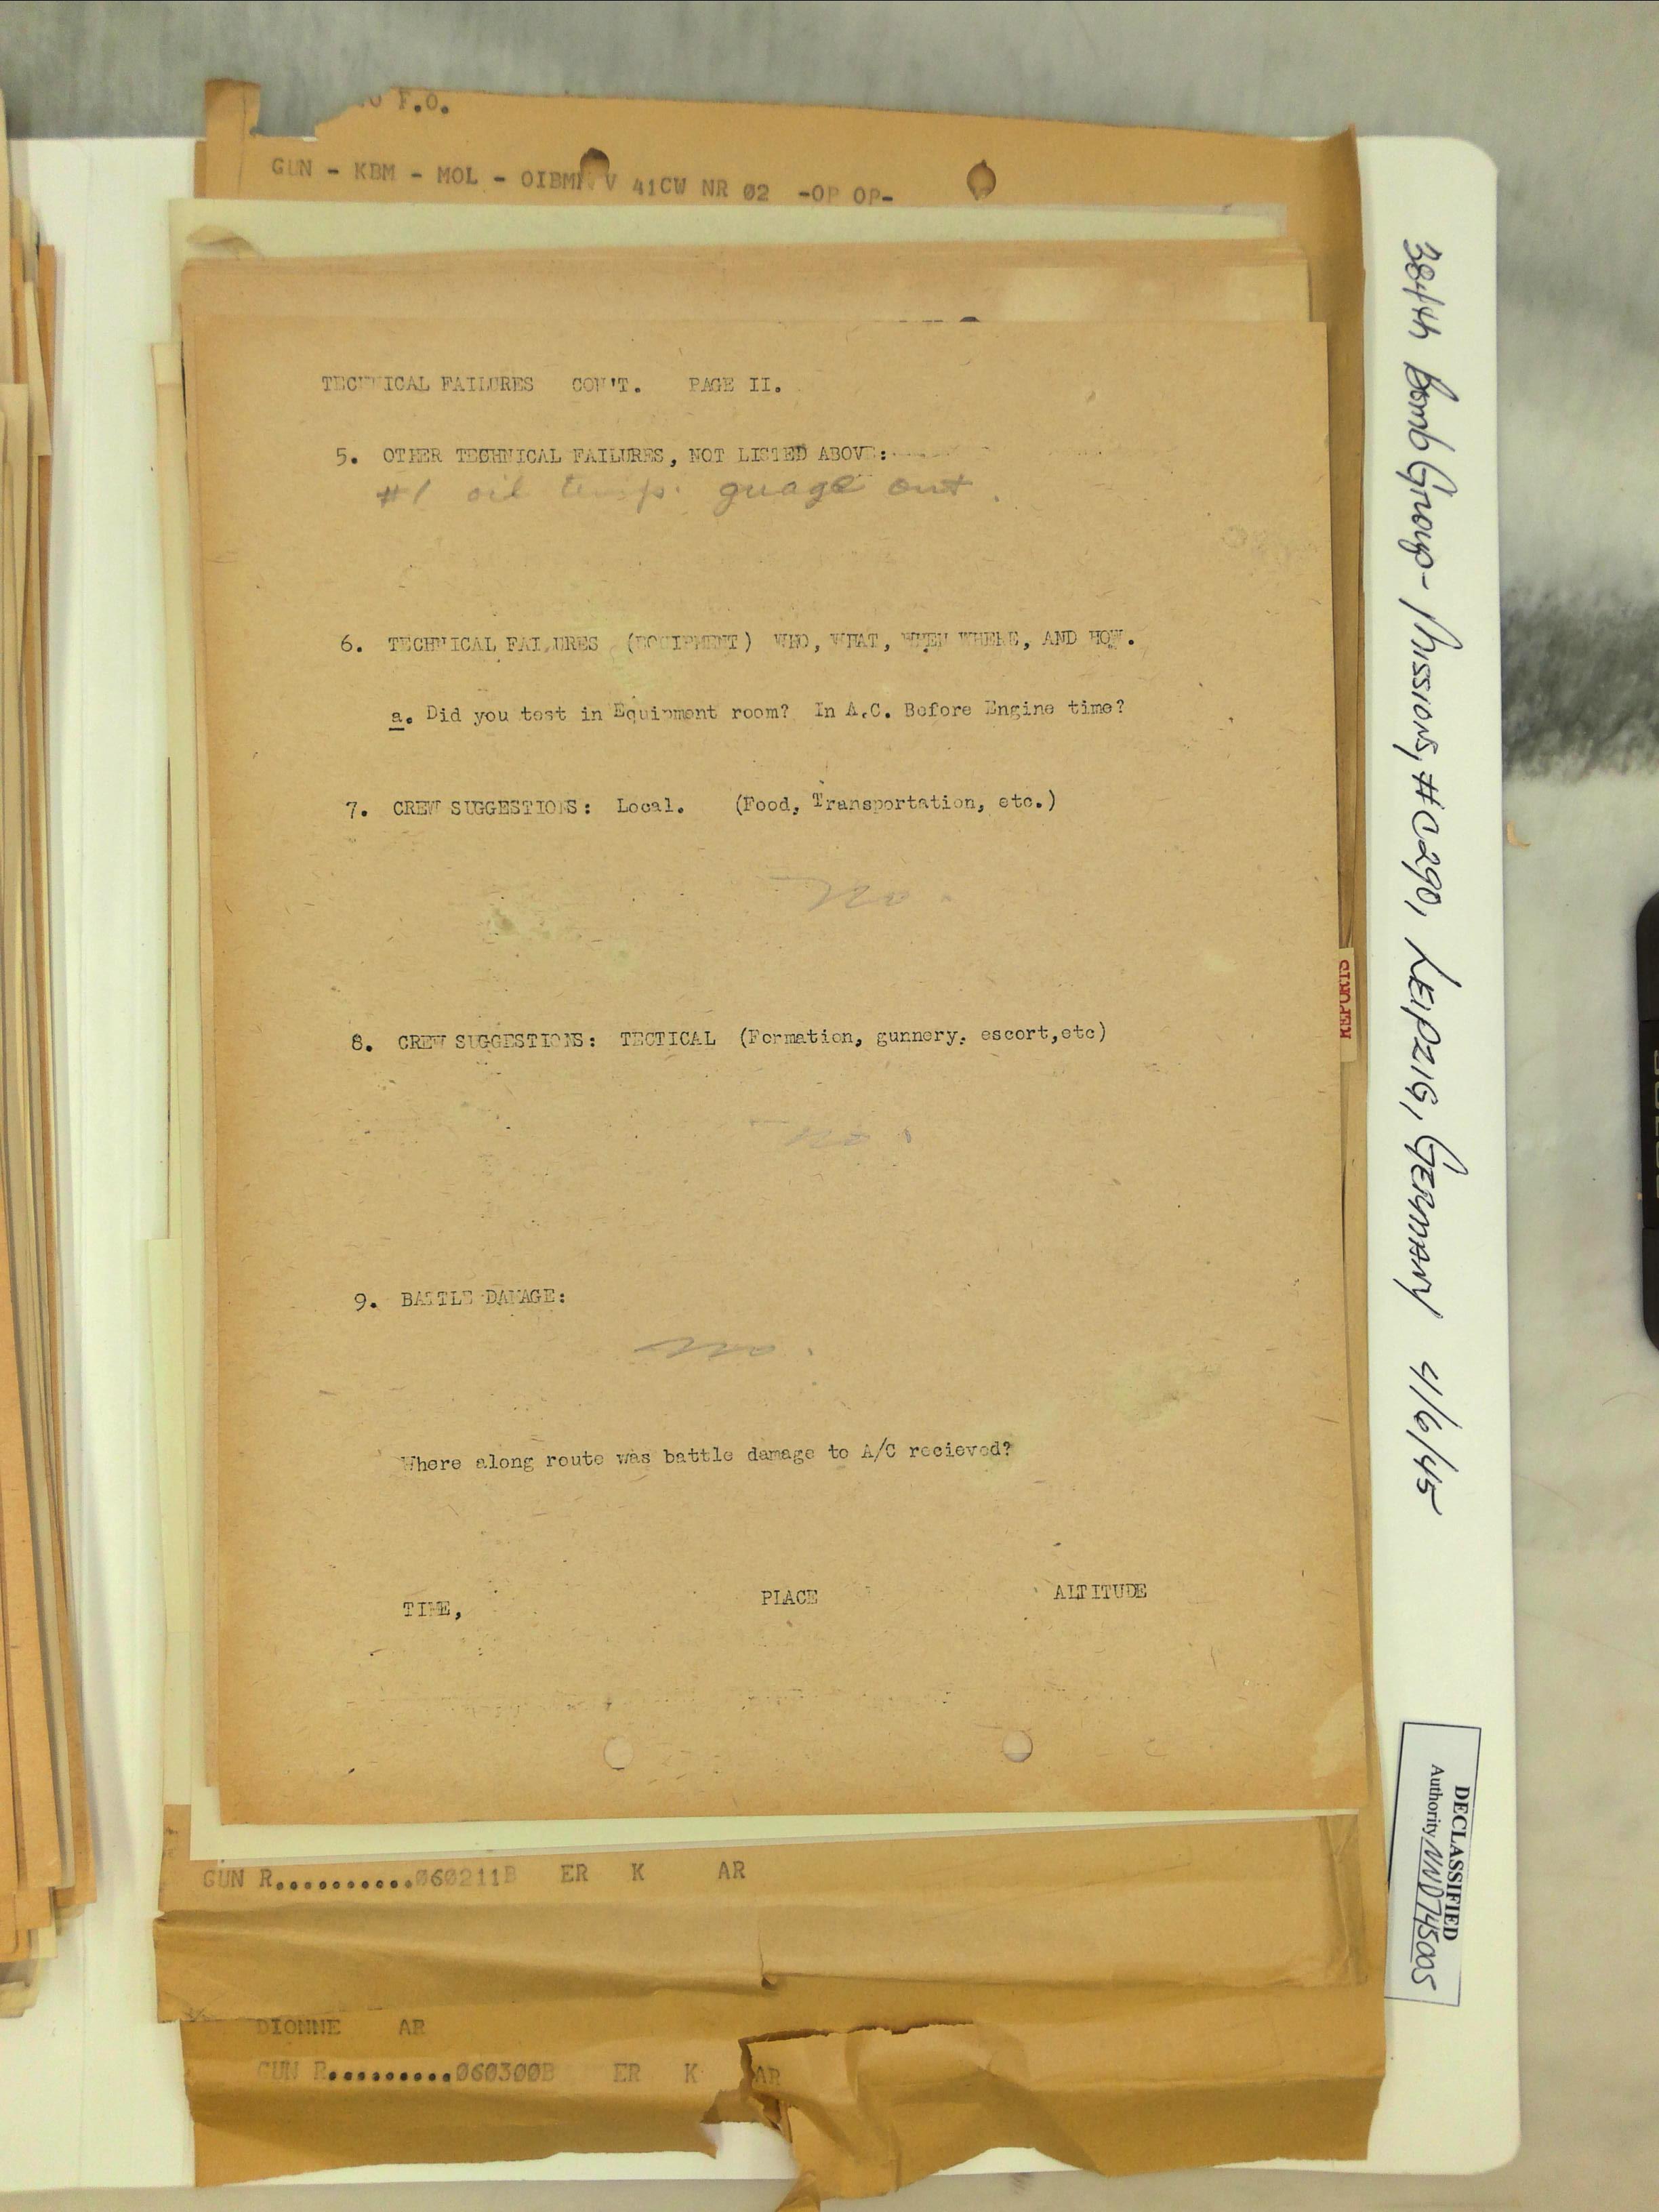 F.O.
GUN - KBM - MOL - OIBMN V 41CW NR 02 -OP OP-
TECHNICAL FAILURES CON'T. PAGE II.
5. OTHER TECHNICAL FAILURES, NOT LISTED ABOVE:
#1 oil temp. guage out.
6. TECHNICAL FAILURES (EQUIPMENT) WHO, WHAT, WHEN WHERE, AND HOW.
a. Did you test in Equipment room? In A.C. Before Engine time?
7. CREW SUGGESTIONS: Local. (Food, Transportation, etc.)
No.
8. CREW SUGGESTIONS: TECTICAL (Formation, gunnery, escort,etc)
No.
9. BATTLE DAMAGE:
no.
Where along route was battle damage to A/C recieved?
TIME, PLACE ALTITUDE
GUN R...........060211B ER K AR
DIONNE AR
GUN R..........060300B ER K AR
REPORTS
384th Bomb Group - Missions, #C290, LEIPZIG, GERMANY 4/6/45
DECLASSIFIED
Authority NND745005